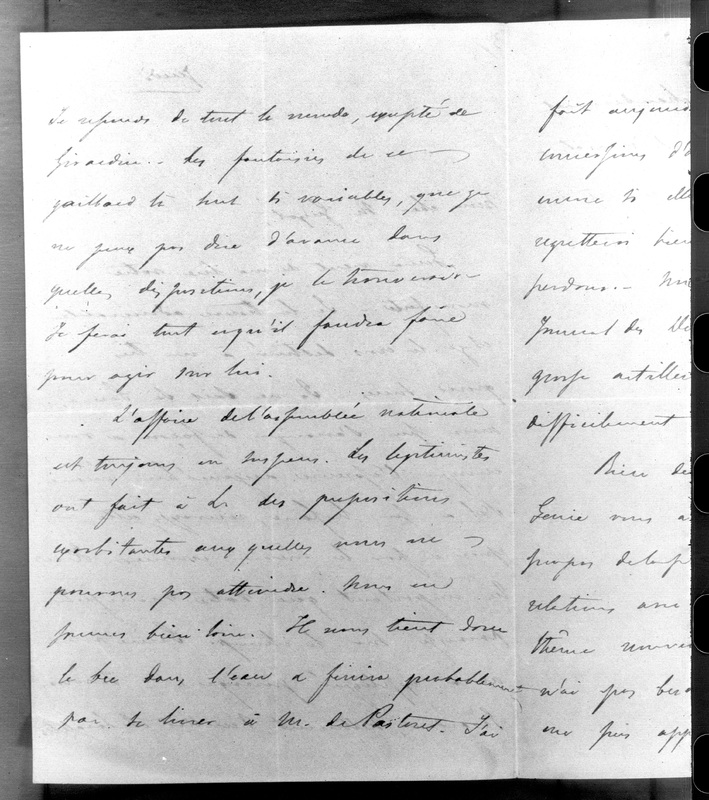 Je réponds de tout le monde, excepté de
Girardin. Les fantaisies de ce
gaillard là sont si variables, que je
ne peux pas dire d'avance dans
quelles dispositions, je le trouverai.
Je ferai tout ce qu'il faudra faire
pour agir sur lui.
L'affaire de l'assemblée nationale
est toujours en suspens. Les légitimistes
ont fait à L. des propositions
exorbitantes auxquelles nous ne
pouvons pas atteindre. Nous en
sommes bien loin. Il nous tient donc
le bec dans l'eau et finira probablement
par se livrer à M. de Pastoret. J'ai
fait
concessions d'a
encore si elle
regretterai bien
perdons.
Journal des Dé
grosse artiller
difficilement
Bien de
Génie vous a
propos de la p
relations avec
thème
n'ai pas beso
me suis app